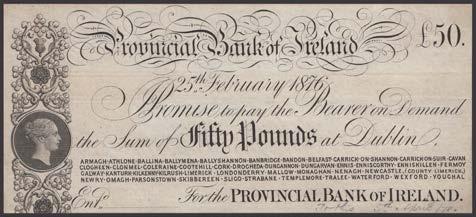 Provincial Bank of Ireland £50.
25th February 1876
Promise to pay the Bearer on Demand
the Sum of Fifty Pounds at Dublin
ARMAGH-ATHLONE-BALLINA-BALLYMENA-BALLYSHANNON-BANBRIDGE-BANDON-BELFAST-CARRICK·ON·SHANNON-CARRICK·ON·SUIR-CAVAN
CLOGHEEN-CLONMEL-COLERAINE-COOTEHILL-CORK-DROGHEDA-DUNGANNON-DUNGARVAN-ENNIS-ENNISCORTHY-ENNISKILLEN-FERMOY
GALWAY-KANTURK-KILKENNY-KILRUSH-LIMERICK-LONDONDERRY-MALLOW-MONAGHAN-NENAGH-NEWCASTLE, (COUNTY LIMERICK,)
NEWRY-OMAGH-PARSONSTOWN-SKIBBEREEN-SLIGO-STRABANE-TEMPLEMORE-TRALEE-WATERFORD-WEXFORD-YOUGHAL
Entd. For the PROVINCIAL BANK OF IRELAND.